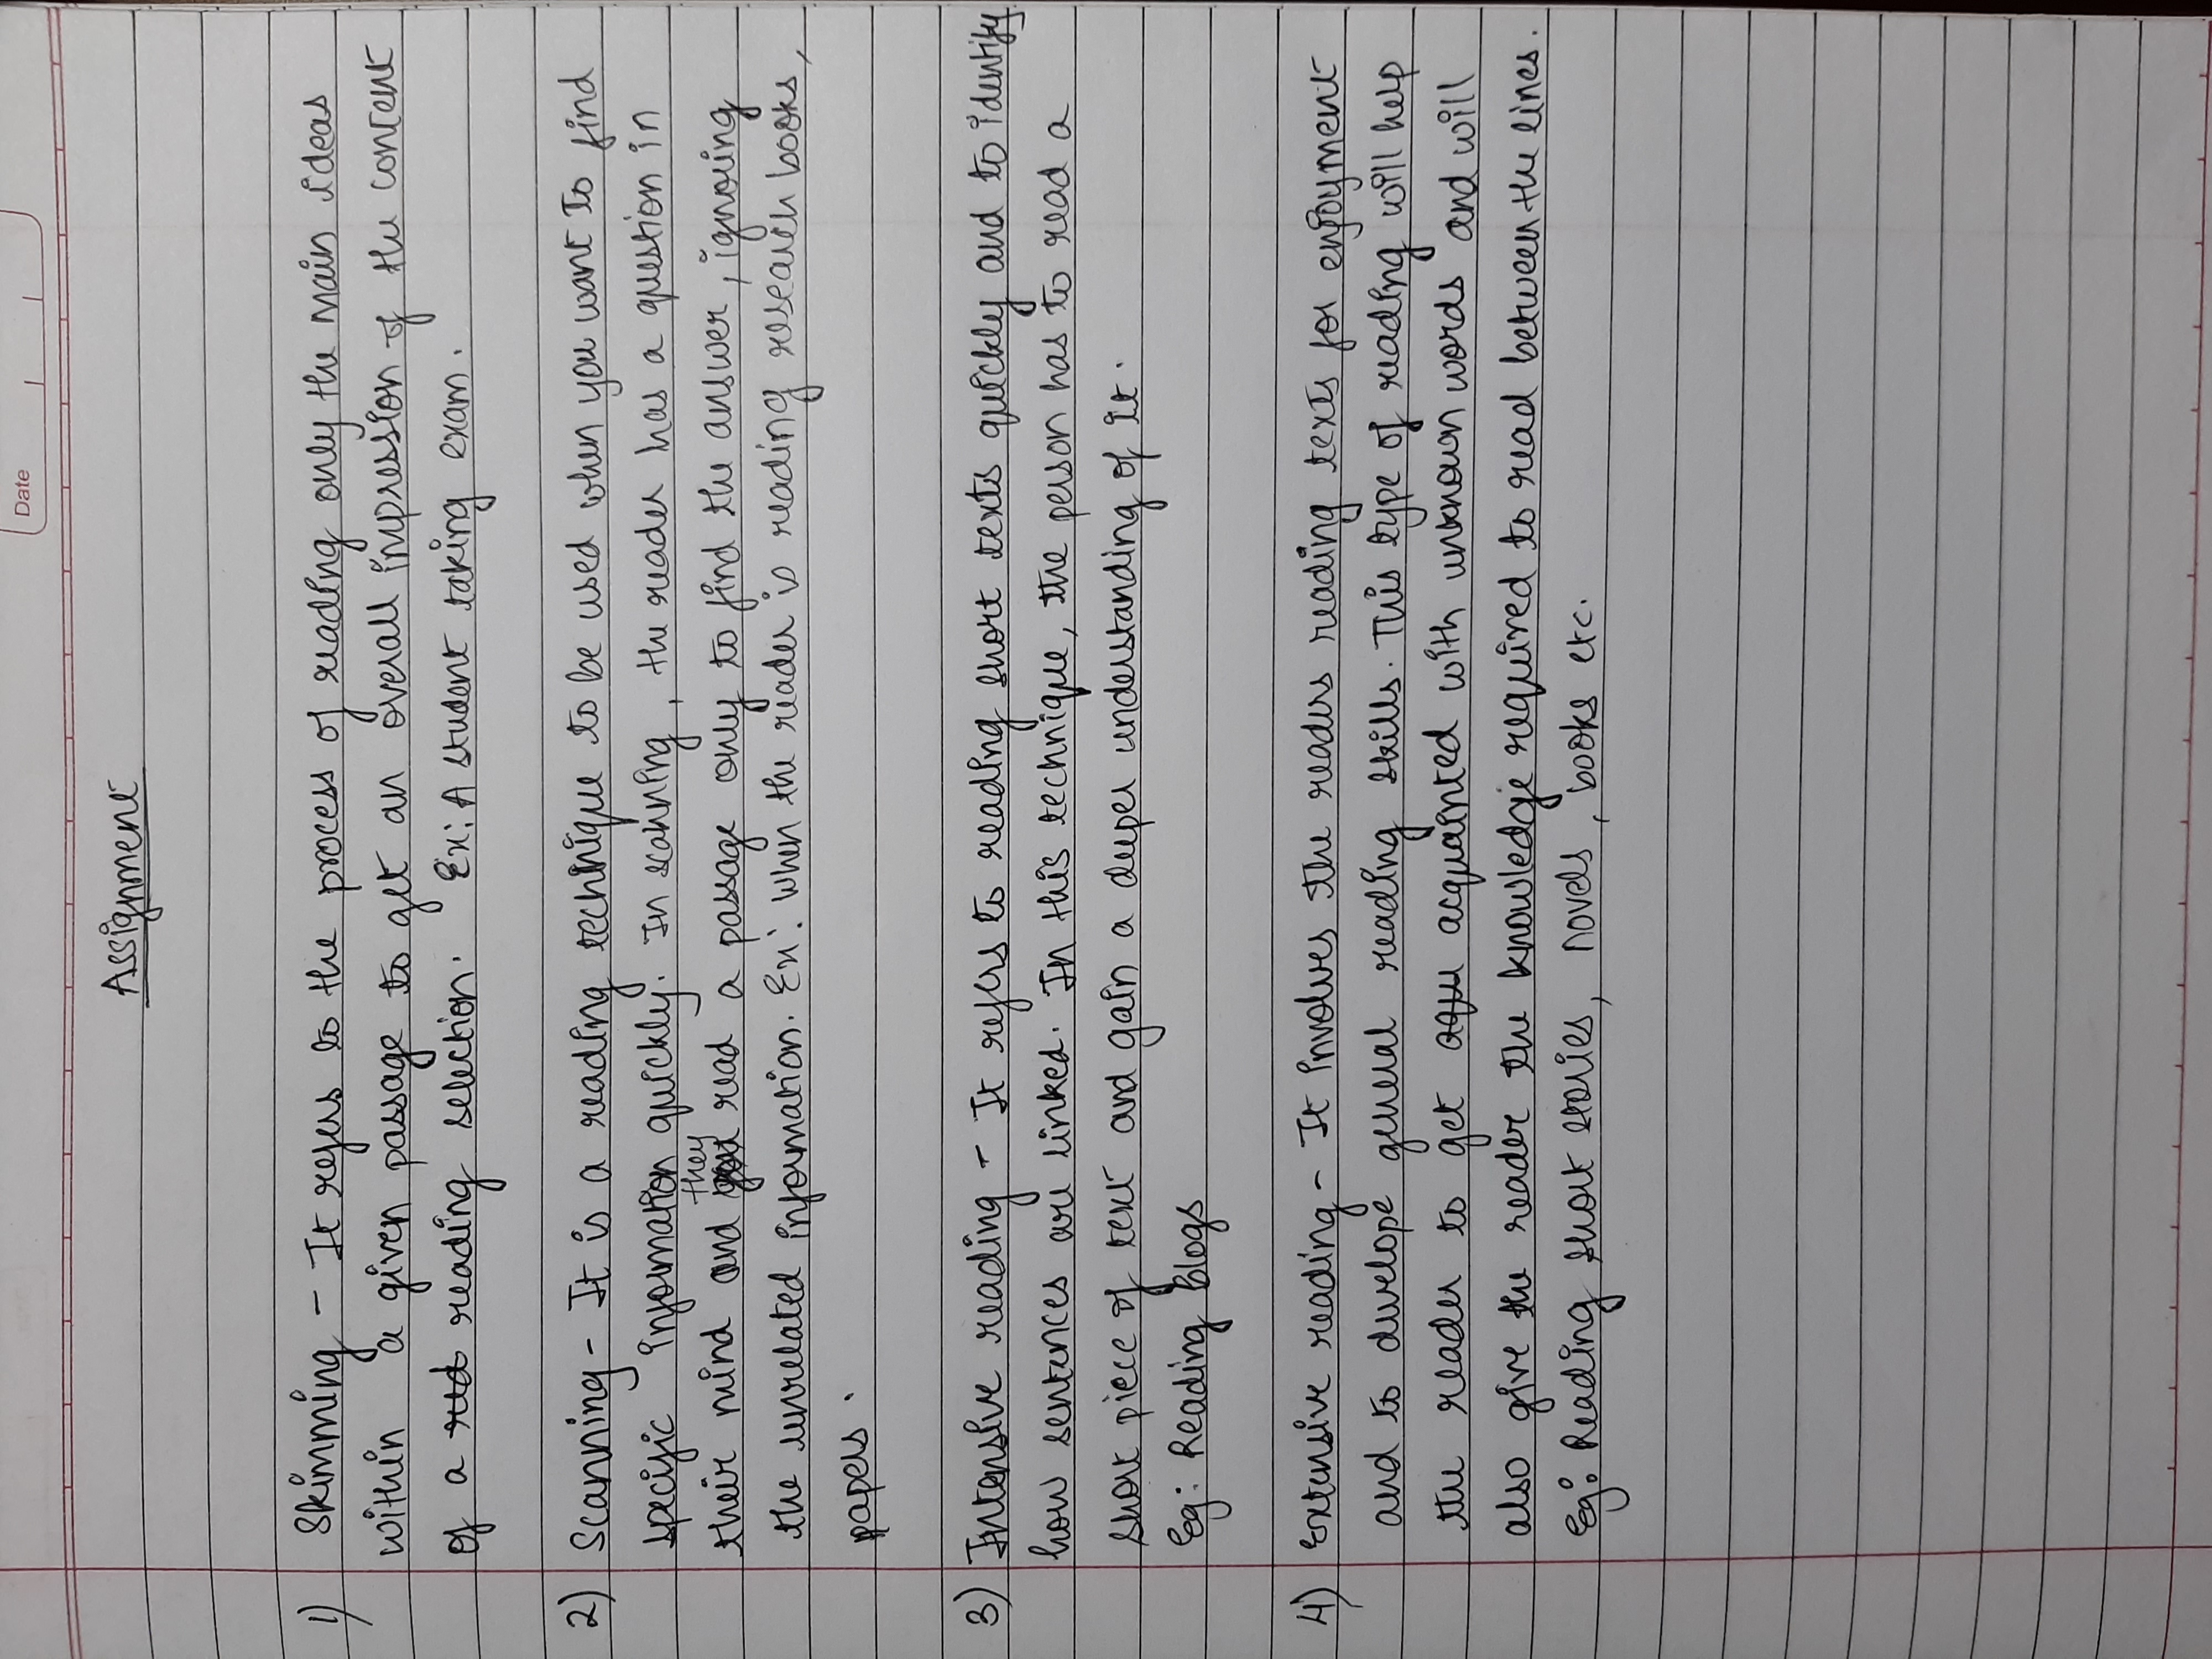 Date
Assignment
1) Skimming - It refers to the process of reading only the main ideas
within a given passage to get an overall impression of the content
of a reading selection. Ex: A student taking exam.
2) Scanning - It is a reading technique to be used when you want to find
specific information quickly. In scanning, the reader has a question in
their mind and they read a passage only to find the answer, ignoring
the unrelated information. Ex: When the reader is reading research books,
papers.
3) Intensive reading - It refers to reading short texts quickly and to identify
how sentences are linked. In this technique, the person has to read a
short piece of text and gain a deeper understanding of it.
Eg: Reading Blogs
4) Extensive reading - It involves the readers reading texts for enjoyment
and to develope general reading skills. This type of reading will help
the reader to get acquainted with unknown words and will
also give the reader the knowledge required to read between the lines.
Eg: Reading short stories, novels, books etc.